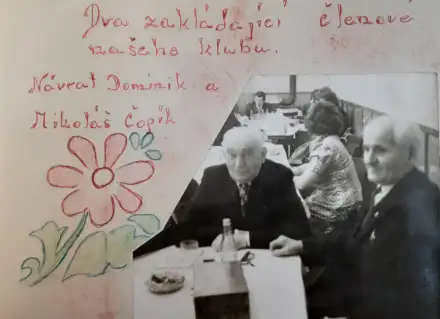 Dva zakládající členové
našeho klubu.
Návrat Dominik a
Mikoláš Čopík